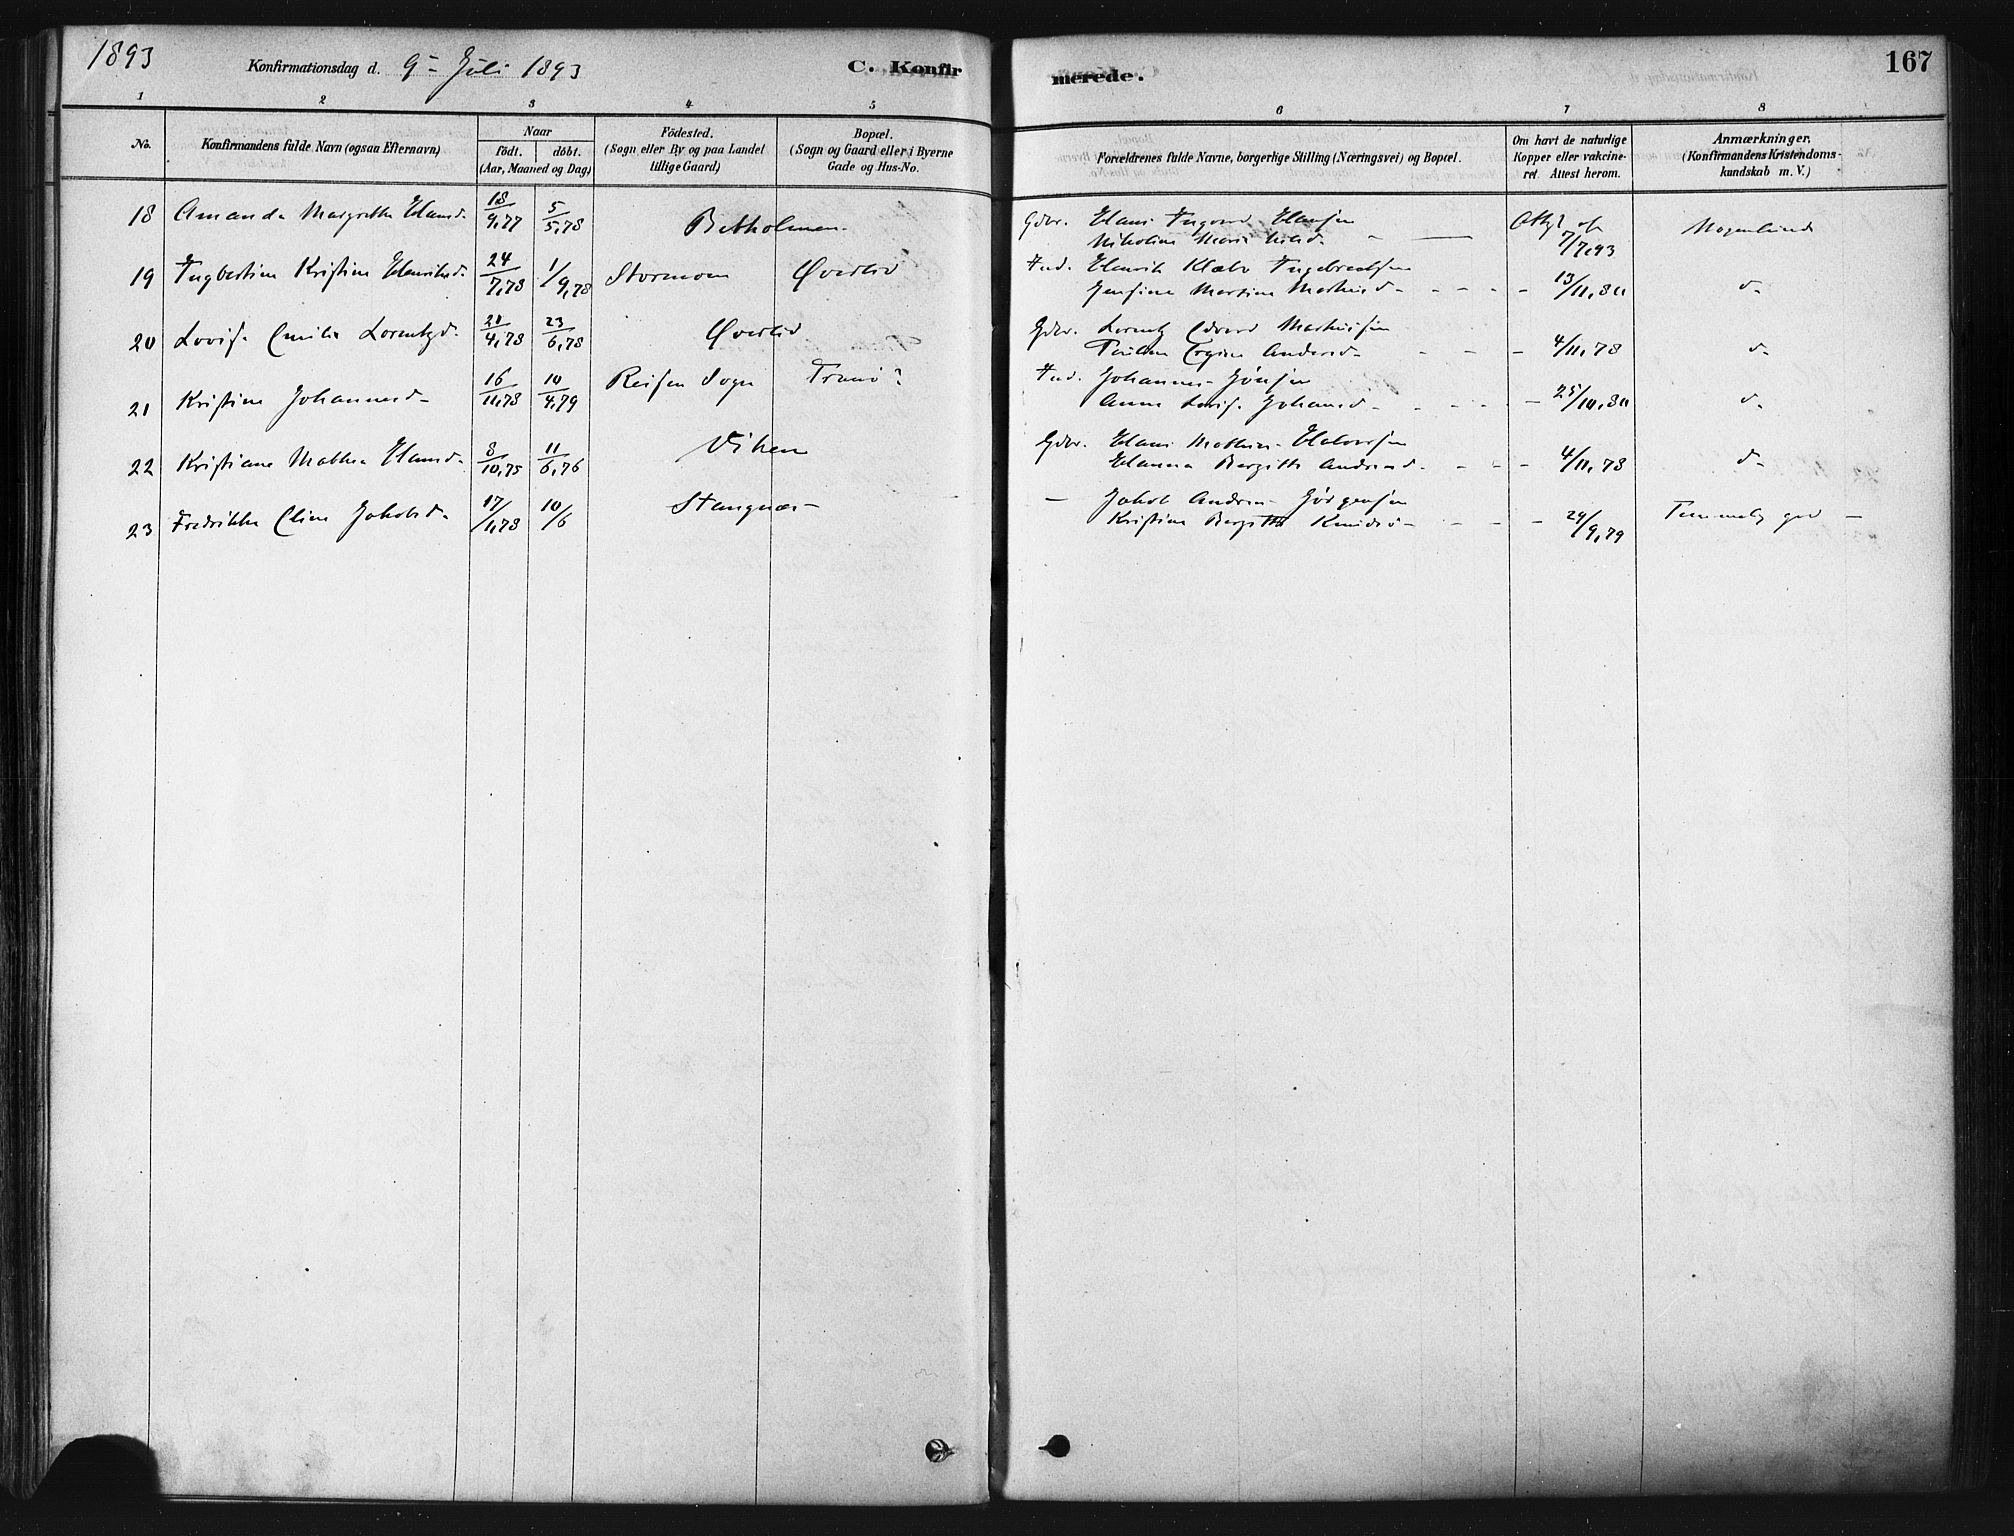 1893
Konfirmationsdag d. 9- Juli 1893
C. Konfir
merede.
167
1 2 3 4 5 6 7 8
No.
Konfirmandens fulde Navn (ogsaa Efternavn)
Naar
födt. döbt.
(Aar, Maaned og Dag)
Födested.
(Sogn eller By og paa Landet
tillige Gaard)
Bopæl.
(Sogn og Gaard eller i Byerne
Gade og Hus-No.
Forældrenes fulde Navne, borgerlige Stilling (Næringsvei) og Bopæl.
Om havt de naturlige
Kopper eller vakcine-
ret. Attest herom.
Anmærkninger,
(Konfirmandens Kristendoms-
kundskab m. V.)
18 Amanda Margrethe Hansd. 18/9,77 5/5,78
Gdbr. Hans Hansen
Nikoline Maria 7/7,93
19 Kristine Henriksd. 24/7,78 1/9,78 Stormoen Øverlid
Ind. Henrik Klæbo Ingebrechtsen
Jensine Martine - - - - 13/11,80 d-
20 Lovise Emilie Lorentzd. 20/4,78 23/6,78 Øverlid
Gdbr. Lorentz Edvard Mathisen
Andersd. - - - 4/11,78 d-
21 Kristine Johannesd- 16/11,78 10/4,79 Reisen Sogn Tranö?
Ind. Johannes Jönsen
Anna Lovise Johansd - - - - 25/10,80 d-
22 Kristiane Mathea Hansd. 8/10,75 11/6,76 Viken
Gdbr. Hans Mathias Halvorsen
Hanna Bergitte Andreasd. - - - 4/11,78 d-
23 Fredrikke Eline Jakobsd. 17/1,78 10/6 Stangnæs-
— Jakob Andreas Jörgensen
Kristine Bergitte - - - 29/9,79 Temmelig god -